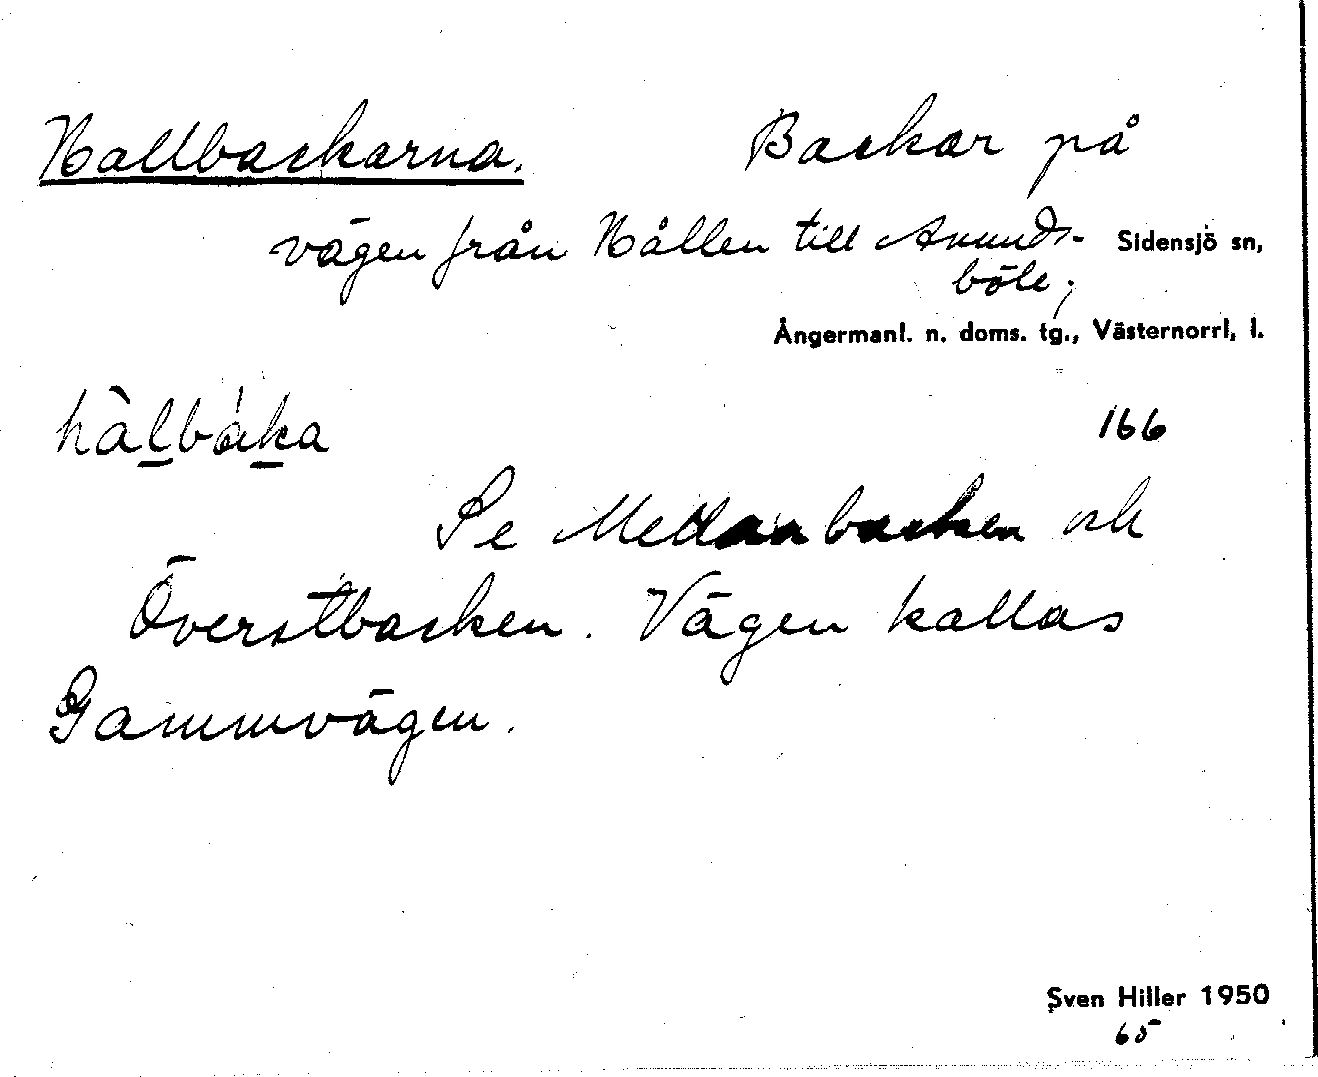 Hallbackarna. Backar på
vägen från Hållen till Anunds- Sidensjö sn,
böle;
Ångermanl. n. doms. tg., Västernorrl. l.
hàlbáka 166
Se Medanbacken och
Överstbacken. Vägen kallas
Gammvägen.
Sven Hiller 1950
65